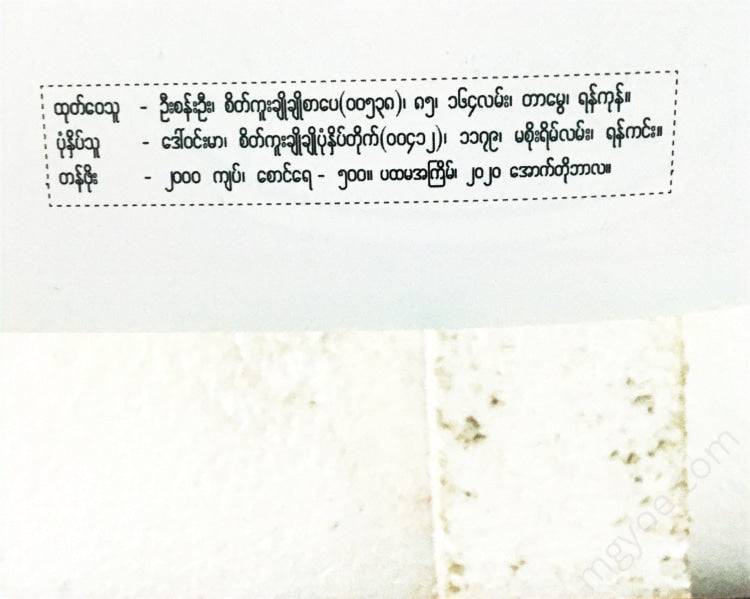 ထုတ်ဝေသူ - ဦးစန်းဦး၊ စိတ်ကူးချိုချိုစာပေ(၀၀၅၃၈)၊ ၈၅၊ ၁၆၄လမ်း၊ တာမွေ၊ ရန်ကုန်။
ပုံနှိပ်သူ - ဒေါ်ဝင်းမာ၊ စိတ်ကူးချိုချိုပုံနှိပ်တိုက်(၀၀၄၁၂)၊ ၁၁၇၉၊ မစိုးရိမ်လမ်း၊ ရန်ကင်း။
တန်ဖိုး - ၂၀၀၀ ကျပ်၊ စောင်ရေ - ၅၀၀။ ပထမအကြိမ်၊ ၂၀၂၀ အောက်တိုဘာလ။
mgyoe.com